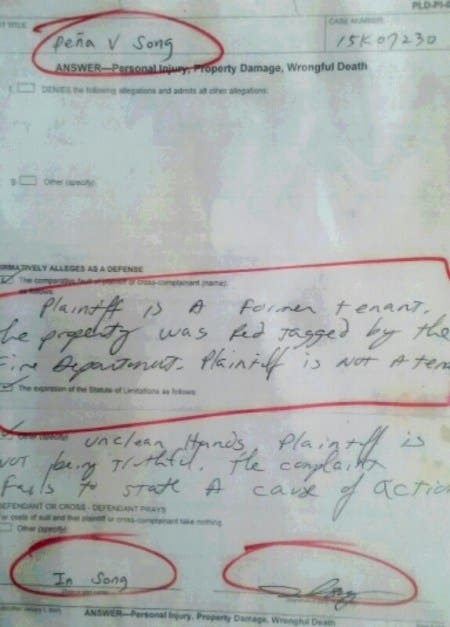 PLD-PI-
TITLE
CASE NUMBER
Peña V Song
15K07230
ANSWER—Personal Injury, Property Damage, Wrongful Death
DENIES the following allegations and admits all other allegations:
g. Other (specify):
AFFIRMATIVELY ALLEGES AS A DEFENSE
The comparative fault of plaintiff or cross-complainant (name):
as follows:
Plaintff is A Former tenant.
he property was Red Tagged by the
Fire Department. Plaintiff is not A tena
The expiration of the Statute of Limitations as follows:
Other (specify):
unclean Hands, Plaintiff is
not being Truthful. The complaint
Fails to state A cause of action
DEFENDANT OR CROSS-DEFENDANT PRAYS
For costs of suit and that plaintiff or cross-complainant take nothing.
Other (specify):
In Song
ANSWER—Personal Injury, Property Damage, Wrongful Death